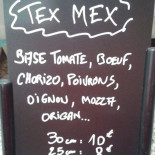 TEX MEX
BASE TOMATE, BOEUF,
CHORIZO, POIVRONS,
OIGNON, MOZZA,
ORIGAN...
30cm : 10€
25cm : 8€